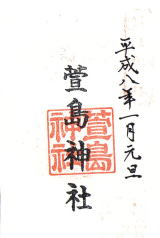 平成八年一月元旦
萱島神社
萱島神社